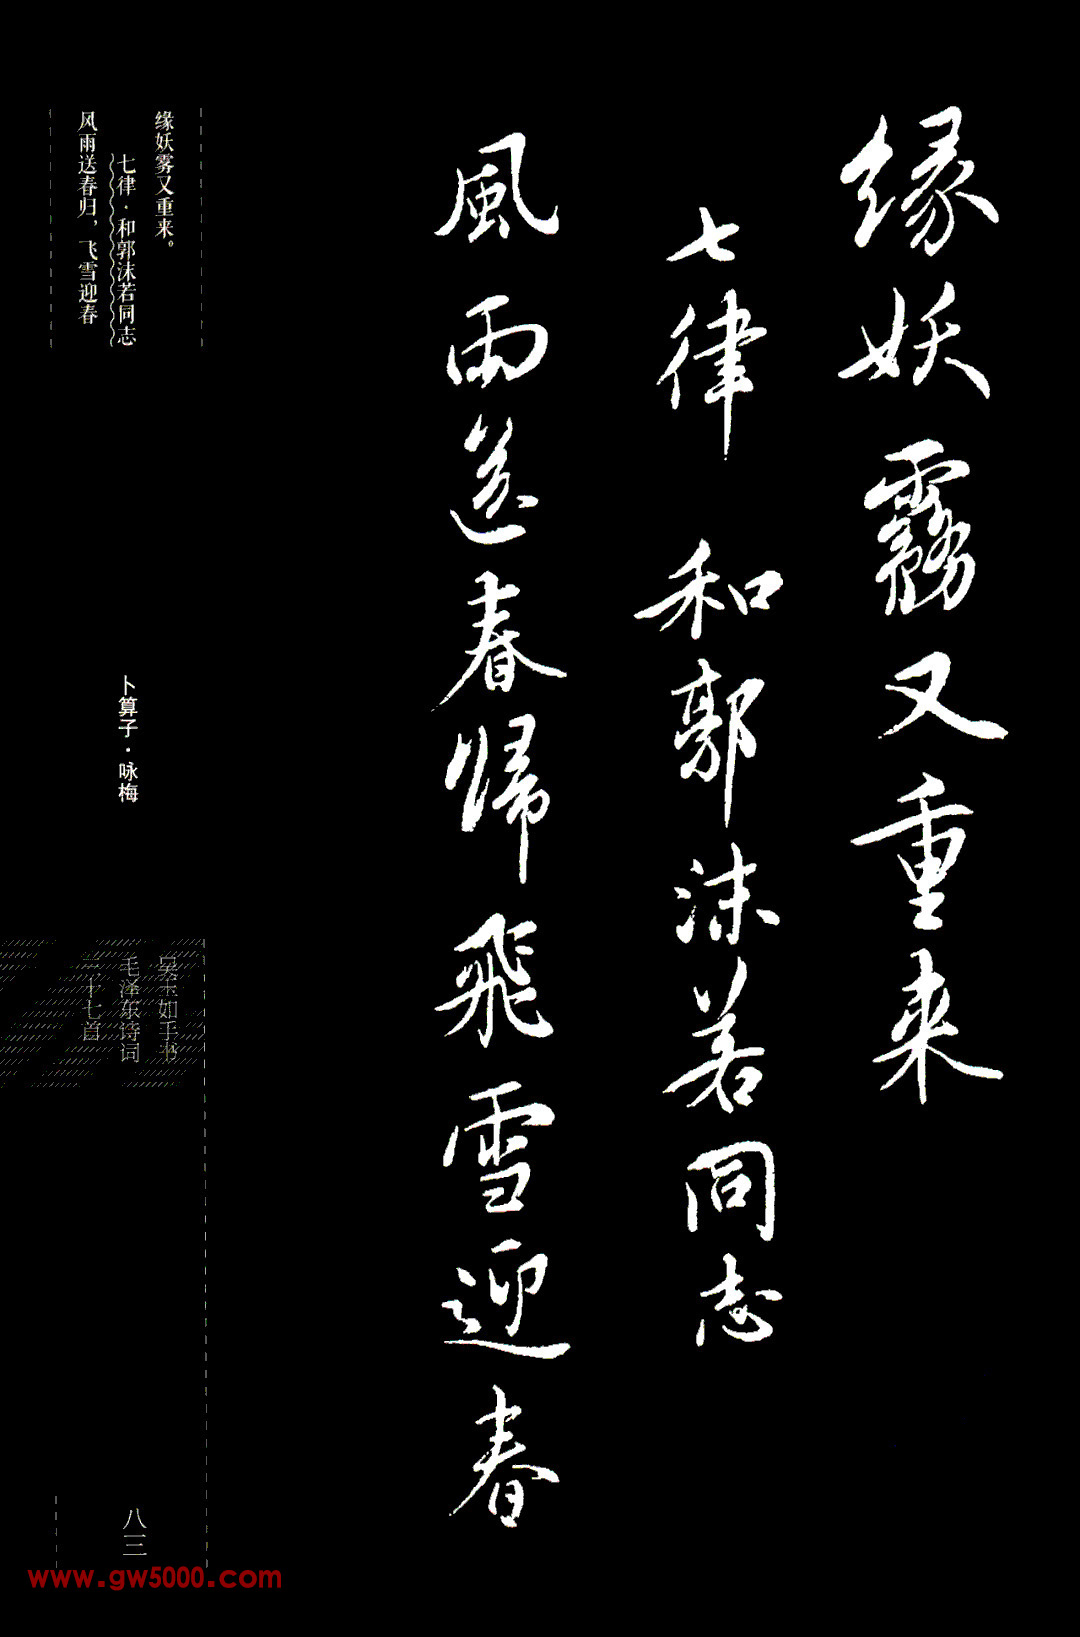 缘妖霧又重来
七律 和郭沫若同志
風雨送春歸飛雪迎春
缘妖雾又重来。
七律·和郭沫若同志
风雨送春归，飞雪迎春
卜算子·咏梅
吴玉如手书
毛泽东诗词
三十七首
八三
www.gw5000.com